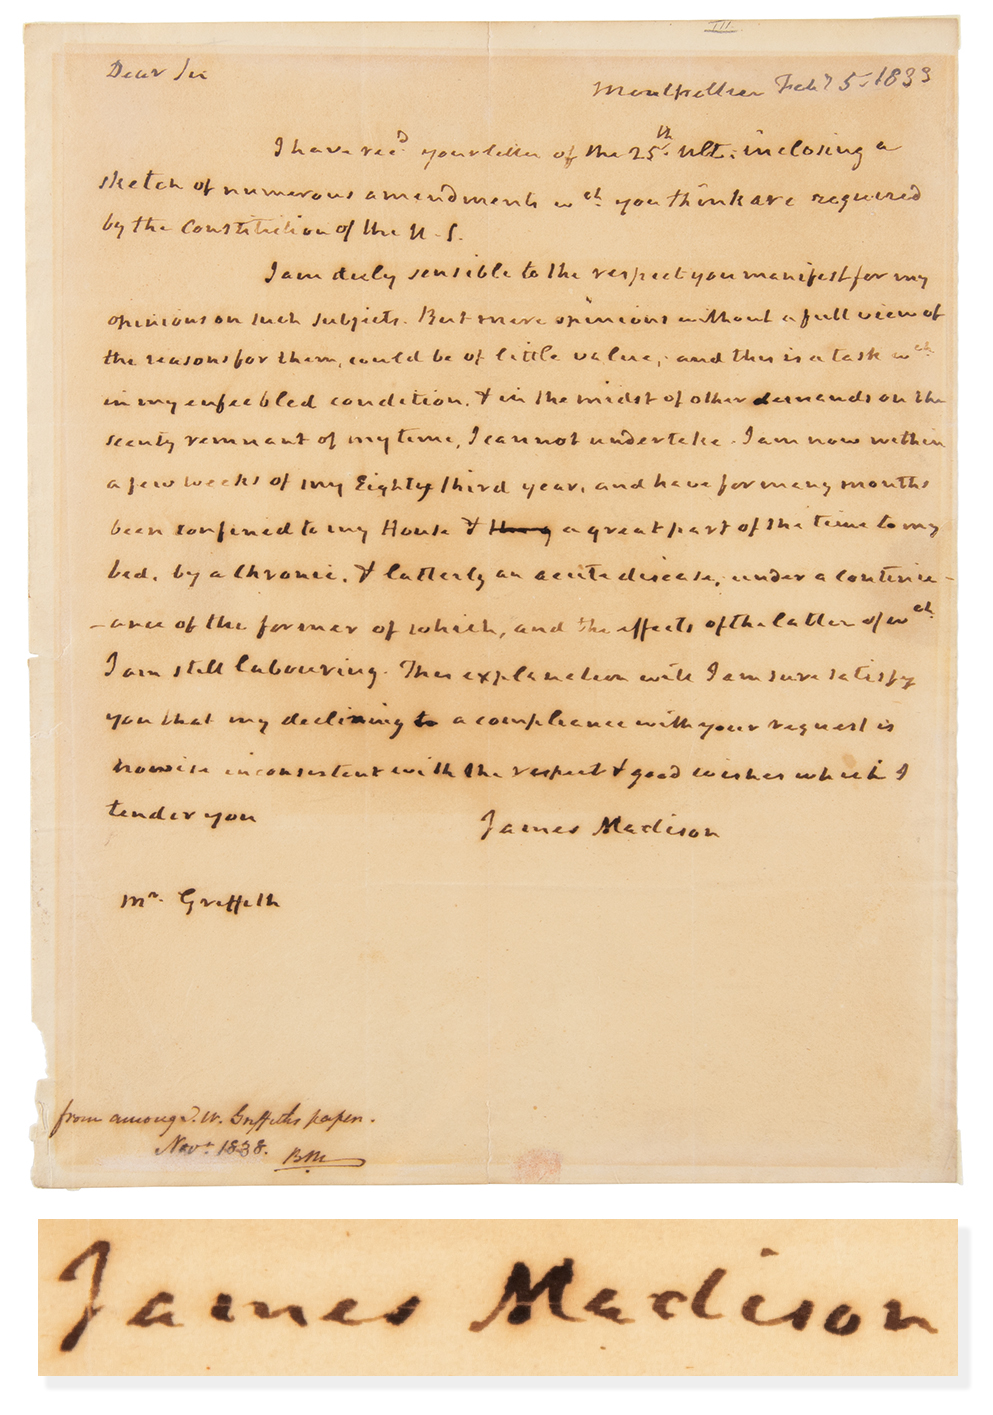 III
Dear Sir
Montpellier Feby 5. 1833
I have recd. your letter of the 25th. Ult. inclosing a
sketch of numerous amendments wch. you think are required
by the Constitution of the U. S.
I am duly sensible to the respect you manifest for my
opinions on such subjects. But mere opinions without a full view of
the reasons for them, could be of little value; and this is a task wch.
in my enfeebled condition, & in the midst of other demands on the
scanty remnant of my time, I cannot undertake. I am now within
a few weeks of my Eighty third year, and have for many months
been confined to my House & a great part of the time to my
bed, by a chronic, & latterly an acute disease, under a continu-
-ance of the former of which, and the effects of the latter of wch.
I am still labouring. This explanation will I am sure satisfy
you that my declining a compliance with your request is
nowise inconsistent with the respect & good wishes which I
tender you
James Madison
Mr. Griffith
from among d. W. Griffiths papers.
Novr. 1838. BM
James Madison